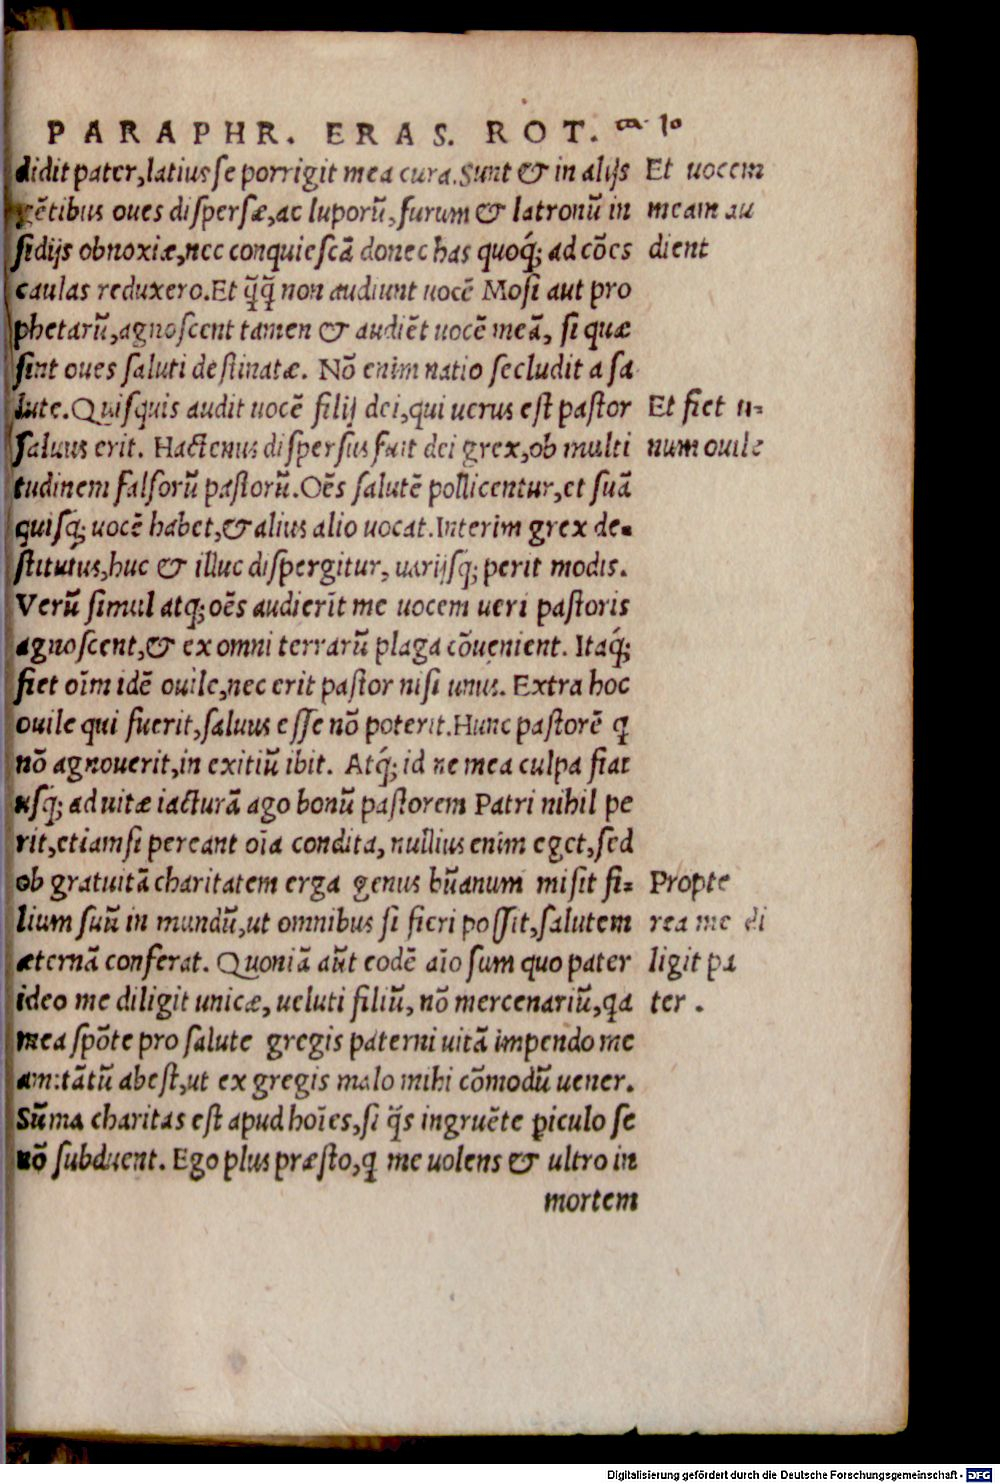 PARAPHR. ERAS. ROT. ca. 10
didit pater,latius se porrigit mea cura.Sunt & in alijs
gētibus oues dispersæ,ac luporū,furum & latronū in
sidijs obnoxiæ,nec conquiescā donec has quoq́; ad cōes
caulas reduxero.Et q̄q̄ non audiunt uocē Mosi aut pro
phetarū,agnoscent tamen & audiēt uocē meā, si quæ
sint oues saluti destinatæ. Nō enim natio secludit a sa
lute.Quisquis audit uocē filij dei,qui uerus est pastor
saluus erit. Hactenus dispersus fuit dei grex,ob multi
tudinem falsorū pastorū.Oēs salutē pollicentur,et suā
quisq; uocē habet,& alius alio uocat.Interim grex de-
stitutus,huc & illuc dispergitur, uarijsq; perit modis.
Verū simul atq; oēs audierīt me uocem ueri pastoris
agnoscent,& ex omni terrarū plaga cōuenient. Itaq́;
fiet oīm idē ouile,nec erit pastor nisi unus. Extra hoc
ouile qui fuerit,saluus esse nō poterit.Hunc pastorē q
nō agnouerit,in exitiū ibit. Atq́; id ne mea culpa fiat
usq; ad uitæ iacturā ago bonū pastorem Patri nihil pe
rit,etiamsi pereant oīa condita, nullius enim eget,sed
ob gratuitā charitatem erga genus hūanum misit fi-
lium suū in mundū,ut omnibus si fieri possit,salutem
æternā conferat. Quoniā aūt eodē aīo sum quo pater
ideo me diligit unicæ, ueluti filiū, nō mercenariū,qa
mea spōte pro salute gregis paterni uitā impendo me
am:tātū abest,ut ex gregis malo mihi cōmodū uener.
Sūma charitas est apud hoīes,si q̄s ingruēte ꝑiculo se
nō subducnt. Ego plus præsto,q me uolens & ultro in
mortem
Et uocem
meam au
dient
Et fiet u-
num ouile
Propte
rea me di
ligit pa
ter .
Digitalisierung gefördert durch die Deutsche Forschungsgemeinschaft - DFG